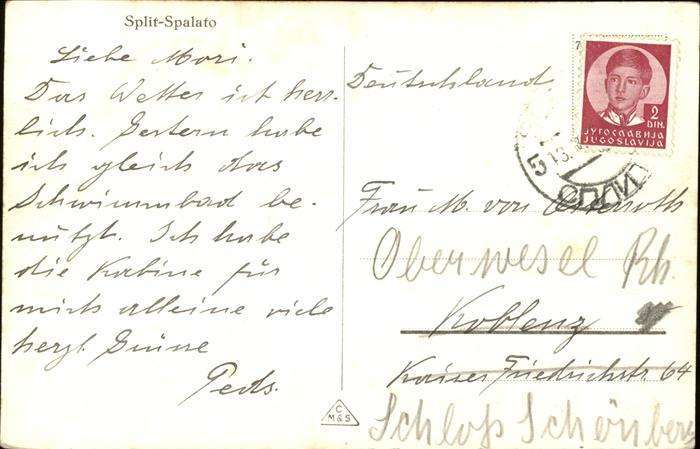 Split-Spalato
Liebe Mori.
Das Wetter ist herr-
lich. Gestern habe
ich gleich das
Schwimmbad be-
nutzt. Ich habe
die Kabine für
mich alleine viele
herzl Grüsse
Peds.
Deutschland
7
2
DIN.
ЈУГОСЛАВИЈА
JUGOSLAVIJA
СПЛИТ
Frau M. von
Oberwesel Rh.
Koblenz
Kaiser Friedrichstr. 64
Schloß Schönberg
C
M&S